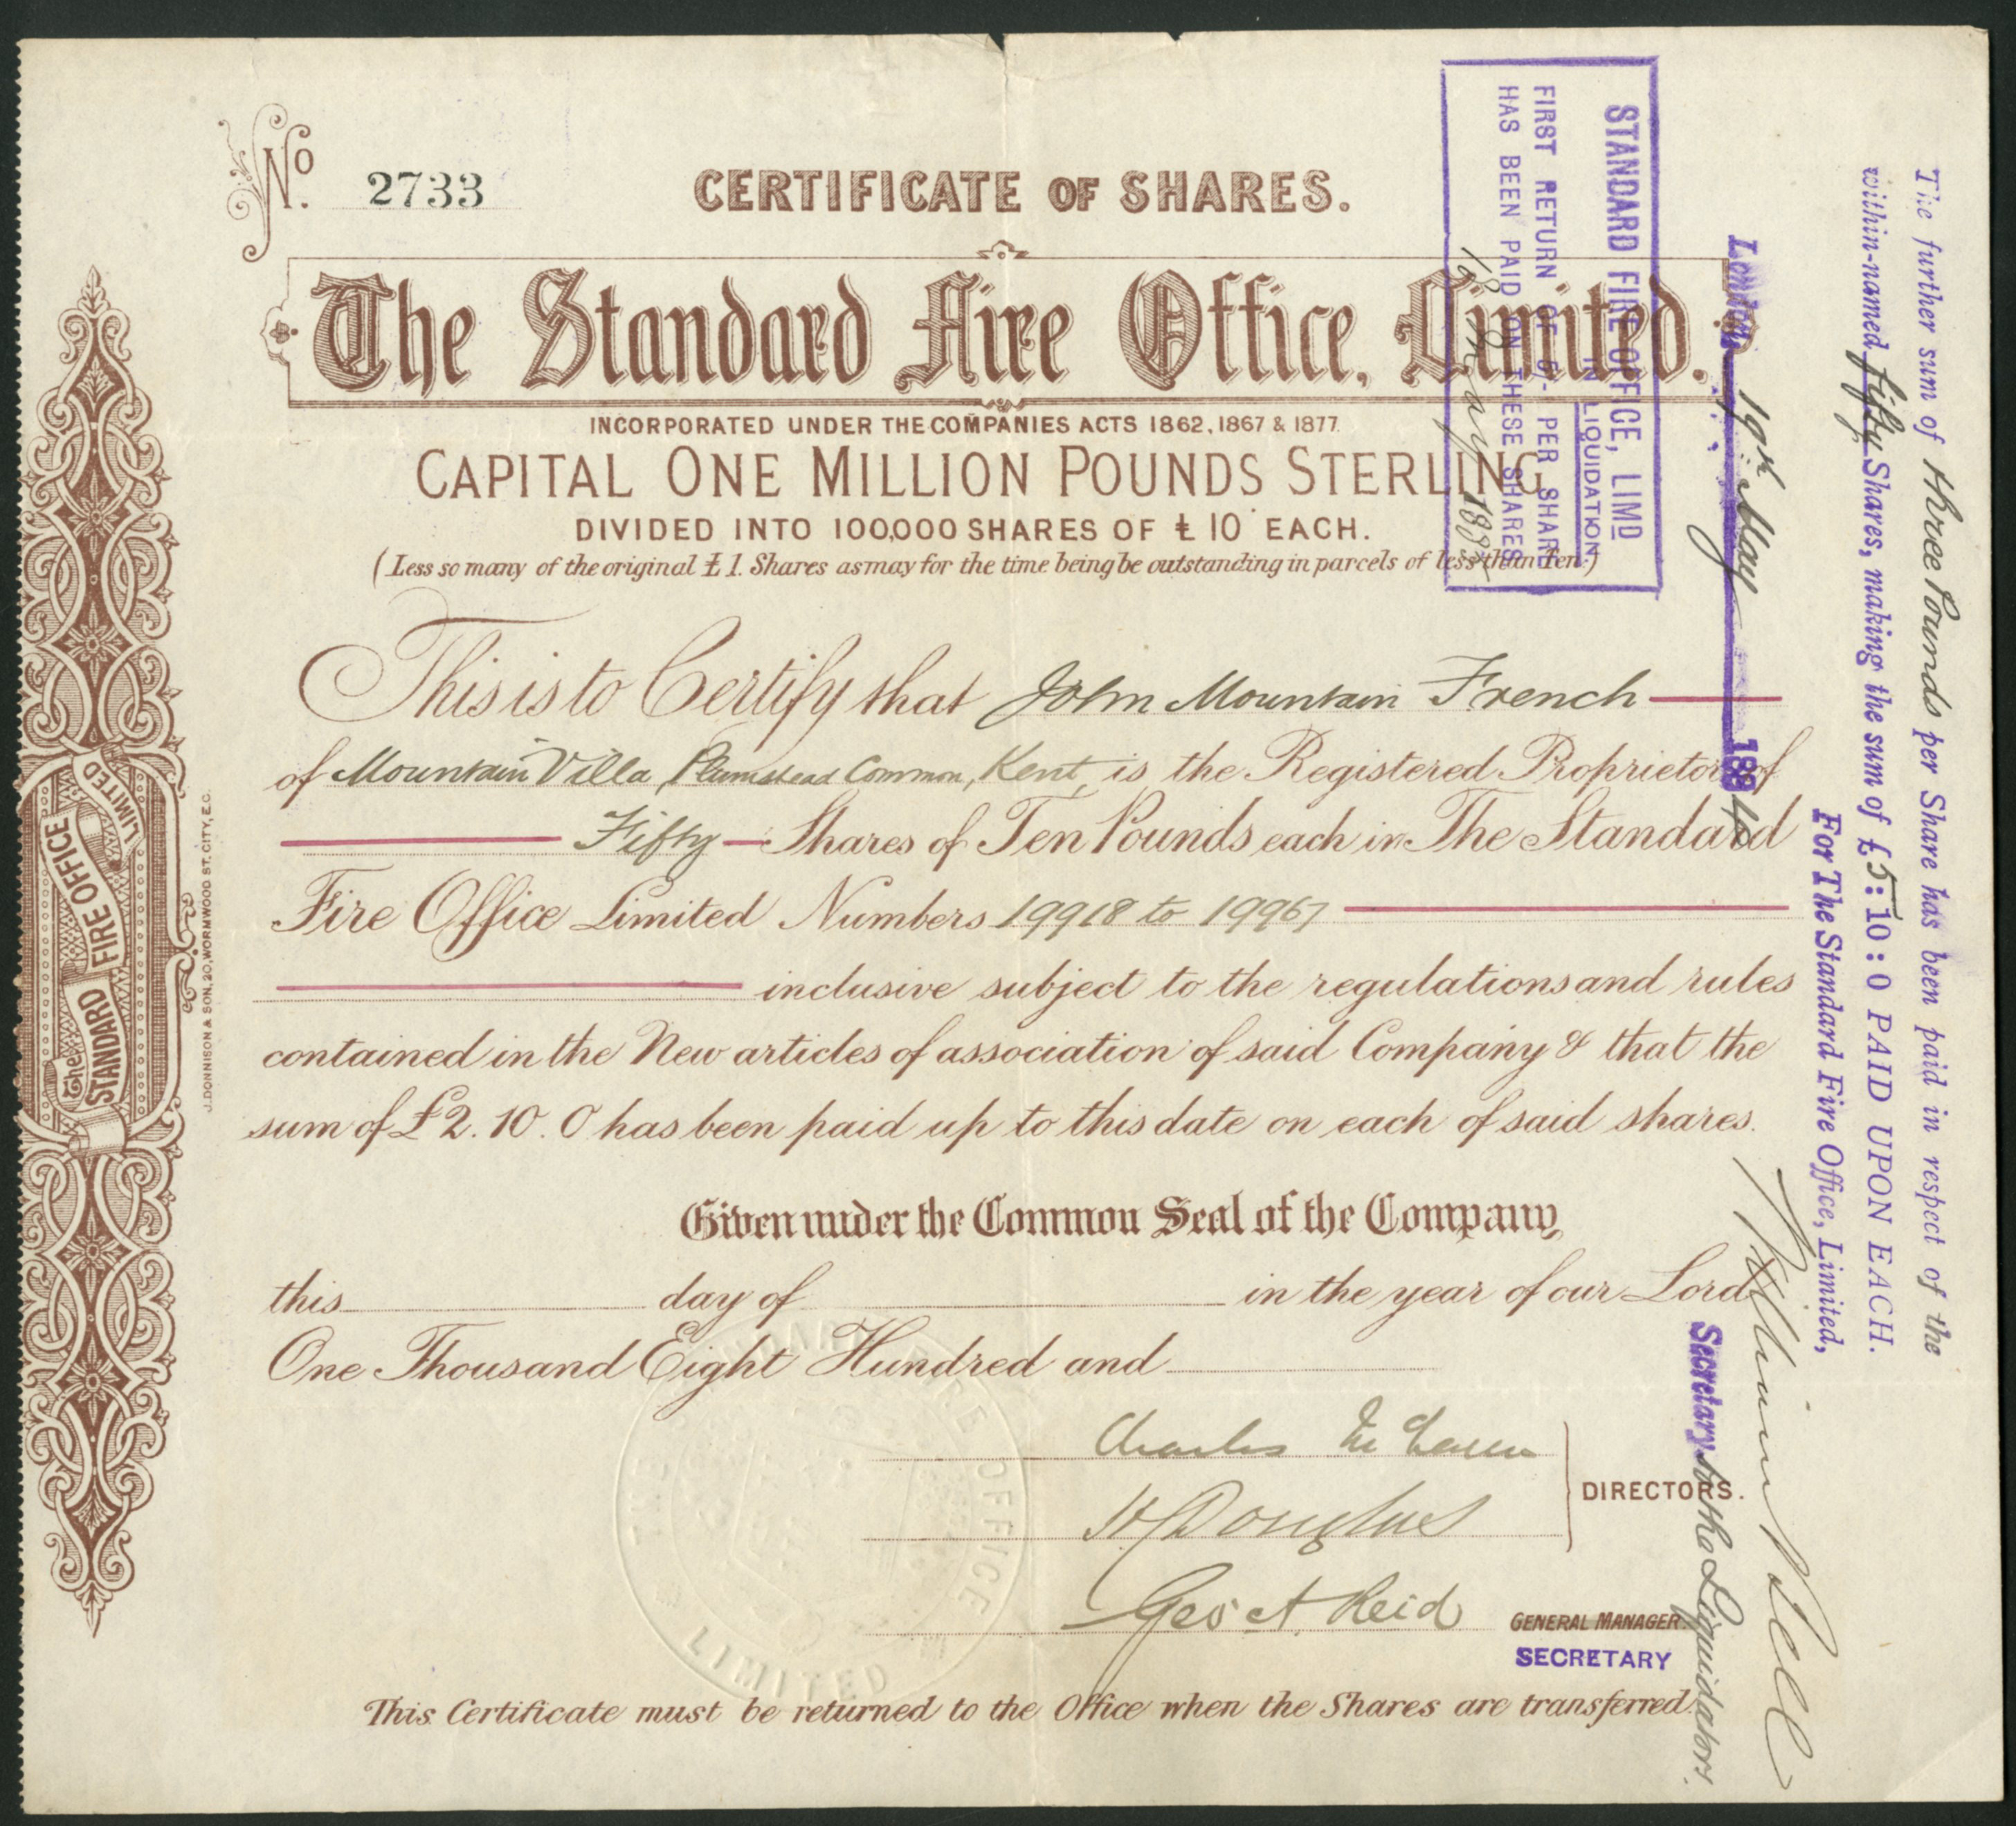 No. 2733
CERTIFICATE OF SHARES.
The Standard Fire Office, Limited.
INCORPORATED UNDER THE COMPANIES ACTS 1862, 1867 & 1877
CAPITAL ONE MILLION POUNDS STERLING
DIVIDED INTO 100,000 SHARES OF £10 EACH.
(Less so many of the original £1. Shares as may for the time being be outstanding in parcels of less than Ten.)
This is to Certify that John Mountain French
of Mountain Villa, Plumstead Common, Kent, is the Registered Proprietor of
Fifty Shares of Ten Pounds each in The Standard
Fire Office Limited Numbers 19918 to 19967
inclusive subject to the regulations and rules
contained in the New articles of association of said Company & that the
sum of £2. 10. 0 has been paid up to this date on each of said shares.
Given under the Common Seal of the Company,
this day of in the year of our Lord
One Thousand Eight Hundred and
Charles McLaren
Douglas
DIRECTORS.
Geo A. Reid
GENERAL MANAGER
SECRETARY
This Certificate must be returned to the Office when the Shares are transferred.
The STANDARD FIRE OFFICE LIMITED
J. DONNISON & SON, 20, WORMWOOD ST. CITY, E.C.
THE STANDARD FIRE OFFICE LIMITED
STANDARD FIRE OFFICE, LIMD
IN LIQUIDATION.
FIRST RETURN OF 5/- PER SHARE
HAS BEEN PAID ON THESE SHARES
18 May
The further sum of three Pounds per Share has been paid in respect of the
within-named fifty Shares, making the sum of £5:10:0 PAID UPON EACH.
For The Standard Fire Office, Limited,
London 19th May 1884
William Bell
Secretary to the Liquidators.